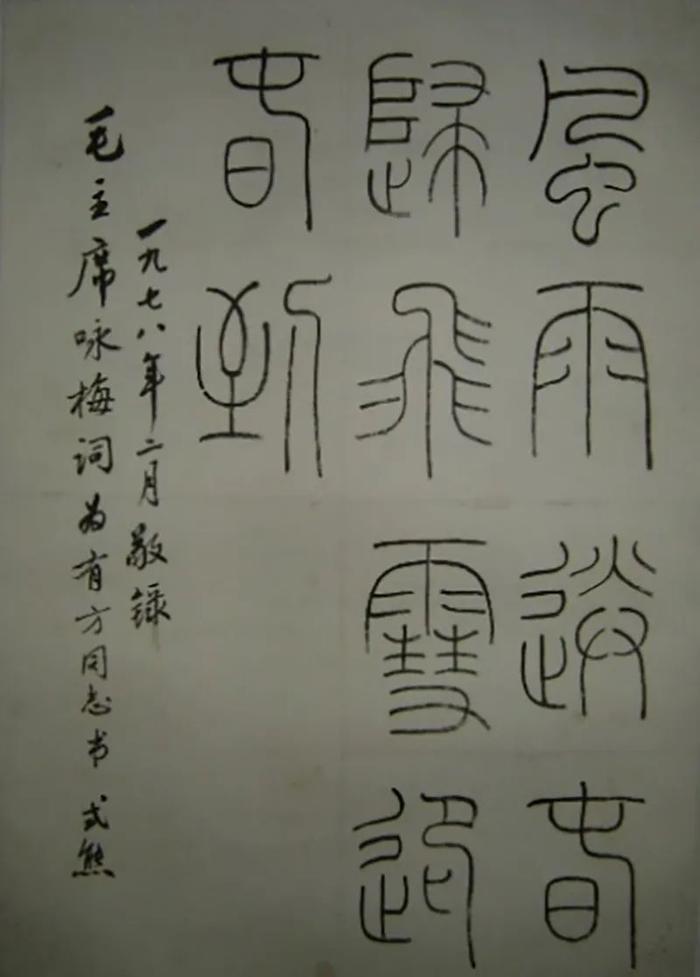 風雨送春
歸飛雪迎
春到
一九七八年二月敬録
毛主席咏梅词为有方同志书 式熊